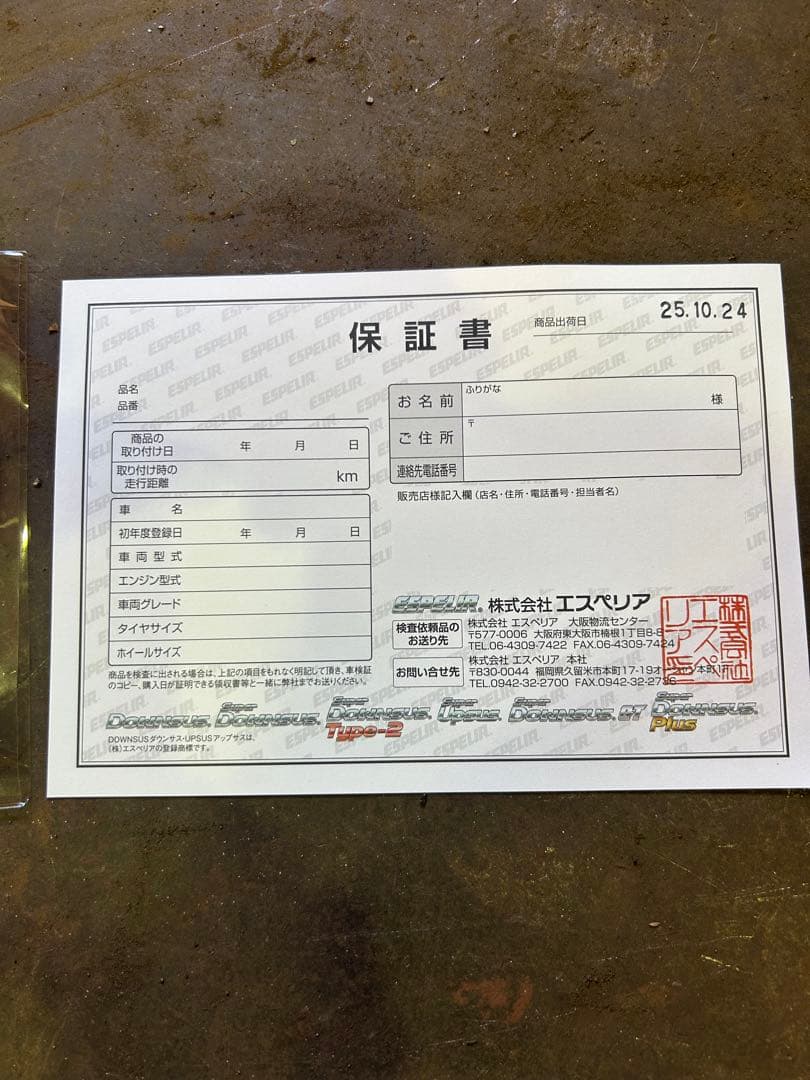 保証書
商品出荷日 25.10.24
品名
品番
商品の取り付け日 年 月 日
取り付け時の走行距離 km
車名
初年度登録日 年 月 日
車両型式
エンジン型式
車両グレード
タイヤサイズ
ホイールサイズ
商品を検査に出される場合は、上記の項目をもれなく明記して頂き、車検証
のコピー、購入日が証明できる領収書等と一緒に弊社までお送りください。
ふりがな
お名前 様
ご住所 〒
連絡先電話番号
販売店様記入欄(店名・住所・電話番号・担当者名)
ESPELIR. 株式会社 エスペリア
検査依頼品のお送り先
株式会社 エスペリア 大阪物流センター
〒577-0006 大阪府東大阪市楠根1丁目8-8
TEL.06-4309-7422 FAX.06-4309-7424
お問い合せ先
株式会社 エスペリア 本社
〒830-0044 福岡県久留米市本町17-19
TEL.0942-32-2700 FAX.0942-32-2736
株式会社エスペリア
DOWNSUS. Super DOWNSUS. Super DOWNSUS. Type-2 Super UPSUS. Super DOWNSUS. Super DOWNSUS. Plus
DOWNSUSダウンサス・UPSUSアップサスは、
(株)エスペリアの登録商標です。